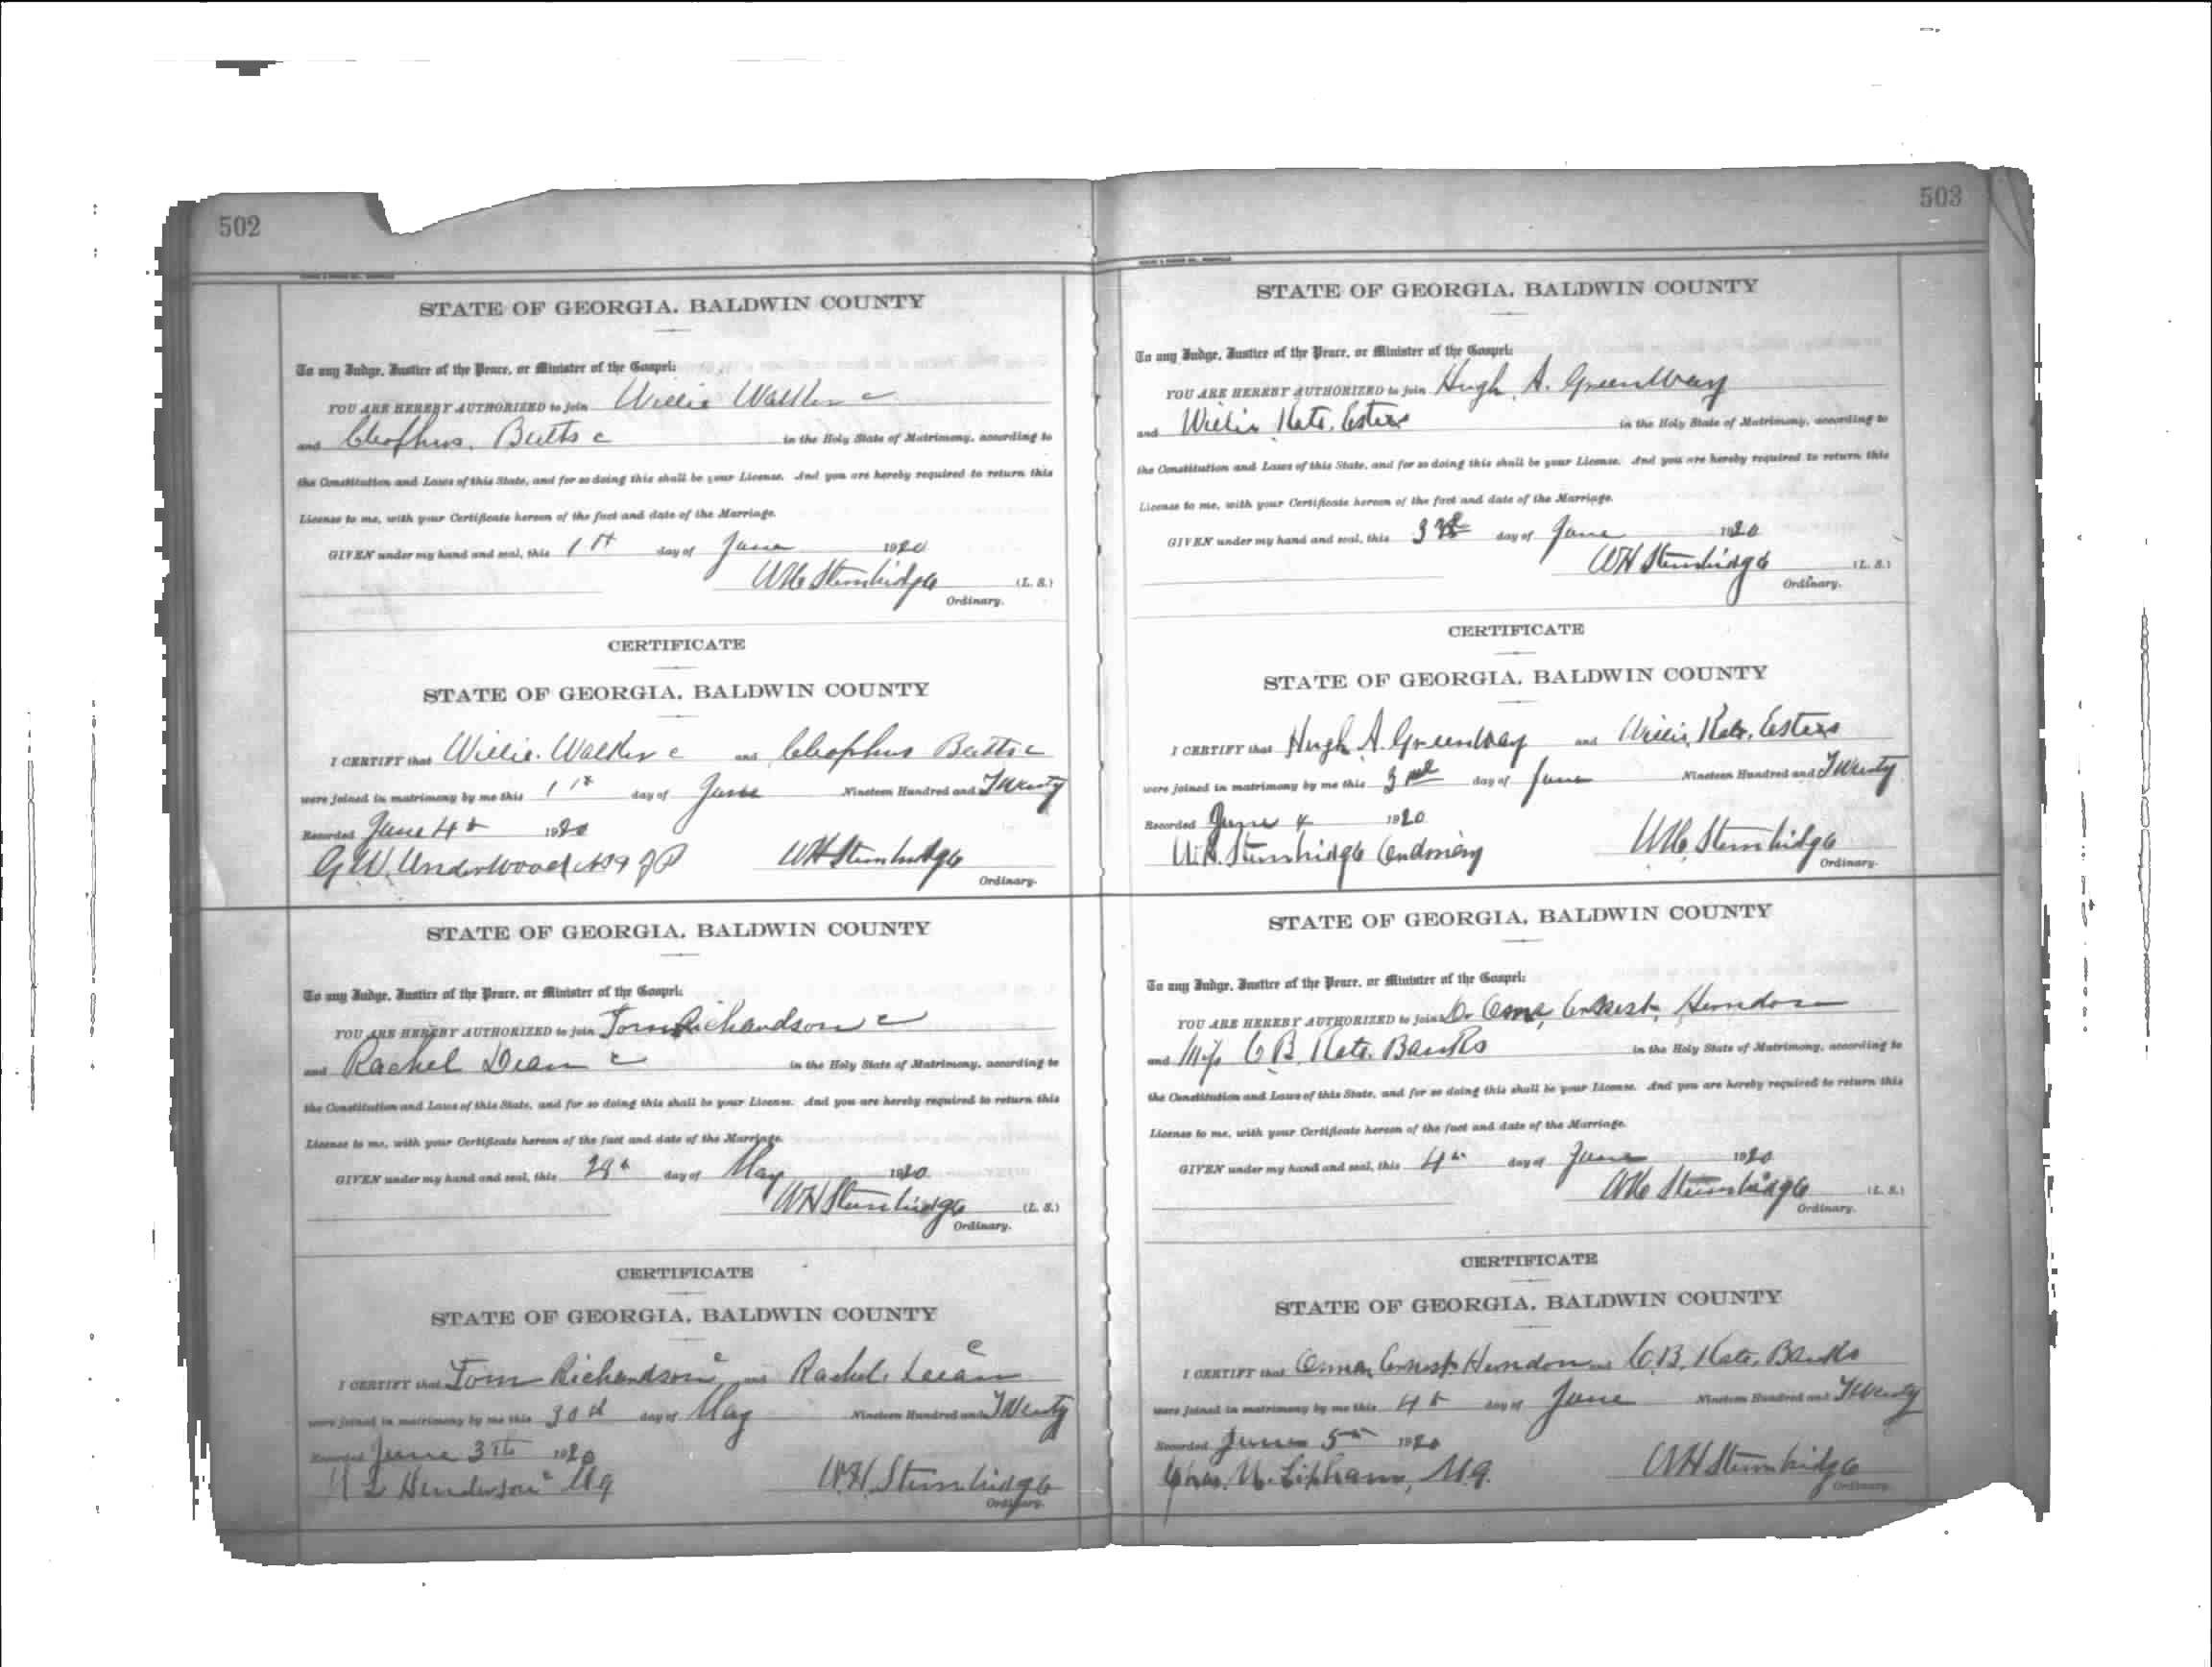 502
STATE OF GEORGIA. BALDWIN COUNTY
To any Judge, Justice of the Peace, or Minister of the Gospel:
YOU ARE HEREBY AUTHORIZED to join Willie Walker c
and Cleophus Butts c in the Holy State of Matrimony, according to
the Constitution and Laws of this State, and for so doing this shall be your License. And you are hereby required to return this
License to me, with your Certificate hereon of the fact and date of the Marriage.
GIVEN under my hand and seal, this 1st day of June 1920
WH Stembridge (L. S.)
Ordinary.
CERTIFICATE
STATE OF GEORGIA. BALDWIN COUNTY
I CERTIFY that Willie Walker c and Cleophus Butts c
were joined in matrimony by me this 1st day of June Nineteen Hundred and Twenty
Recorded June 4th 1920
G W. Underwood WH Stembridge
Ordinary.
STATE OF GEORGIA. BALDWIN COUNTY
To any Judge, Justice of the Peace, or Minister of the Gospel:
YOU ARE HEREBY AUTHORIZED to join Tom Richardson c
and Rachel Dean c in the Holy State of Matrimony, according to
the Constitution and Laws of this State, and for so doing this shall be your License. And you are hereby required to return this
License to me, with your Certificate hereon of the fact and date of the Marriage.
GIVEN under my hand and seal, this day of May 1920
WH Stembridge (L. S.)
Ordinary.
CERTIFICATE
STATE OF GEORGIA. BALDWIN COUNTY
I CERTIFY that Tom Richardson c and Rachel Dean c
were joined in matrimony by me this 30th day of May Nineteen Hundred and Twenty
Recorded June 3th 1920
Henderson c M.G. W.H. Stembridge
Ordinary.
503
STATE OF GEORGIA. BALDWIN COUNTY
To any Judge, Justice of the Peace, or Minister of the Gospel:
YOU ARE HEREBY AUTHORIZED to join Hugh A. Greenway
and Willie Kate Esters in the Holy State of Matrimony, according to
the Constitution and Laws of this State, and for so doing this shall be your License. And you are hereby required to return this
License to me, with your Certificate hereon of the fact and date of the Marriage.
GIVEN under my hand and seal, this 3rd day of June 1920
WH Stembridge (L. S.)
Ordinary.
CERTIFICATE
STATE OF GEORGIA. BALDWIN COUNTY
I CERTIFY that Hugh A. Greenway and Willie Kate Esters
were joined in matrimony by me this 3rd day of June Nineteen Hundred and Twenty
Recorded June 4 1920
W.H. Stembridge Ordinary WH Stembridge
Ordinary.
STATE OF GEORGIA, BALDWIN COUNTY
To any Judge, Justice of the Peace, or Minister of the Gospel:
YOU ARE HEREBY AUTHORIZED to join Ernest Herndon
and C B Kate Banks in the Holy State of Matrimony, according to
the Constitution and Laws of this State, and for so doing this shall be your License. And you are hereby required to return this
License to me, with your Certificate hereon of the fact and date of the Marriage.
GIVEN under my hand and seal, this 4th day of June 1920
WH Stembridge (L. S.)
Ordinary.
CERTIFICATE
STATE OF GEORGIA. BALDWIN COUNTY
I CERTIFY that Ernest Herndon and C.B. Kate Banks
were joined in matrimony by me this 4th day of June Nineteen Hundred and Twenty
Recorded June 5th 1920
Lipham, M.G. WH Stembridge
Ordinary.